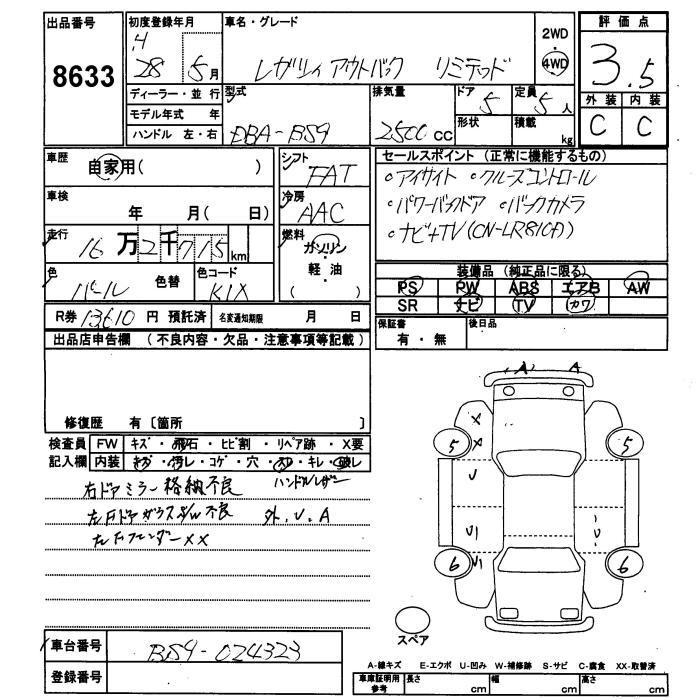 出品番号
8633
初度登録年月
H
28 5月
ディーラー・並行
モデル年式 年
ハンドル 左・右
車名・グレード
レガシィ アウトバック リミテッド
2WD
4WD
型式
DBA-BS9
排気量
2500 cc
ドア
5
形状
定員
5人
積載
kg
評価点
3.5
外装 内装
C C
車歴
自家用( )
車検
年 月( 日)
走行
16万2千715km
色
パール
色替
色コード
K1X
シフト
FAT
冷房
AAC
燃料
ガソリン
軽油
( )
セールスポイント (正常に機能するもの)
○アイサイト ○クルーズコントロール
○パワーバックドア ○バックカメラ
○ナビ+TV(CN-LR810D)
装備品 (純正品に限る)
PS PW ABS エアB AW
SR ナビ TV カワ
R券 13610 円 預託済 名変通知期限 月 日
保証書
有・無
後日品
出品店申告欄 (不良内容・欠品・注意事項等記載)
修復歴 有〔箇所 〕
検査員
記入欄
FW キズ・飛石・ヒビ割・リペア跡・X要
内装 キズ・汚レ・コゲ・穴・スレ・キレ・破レ
ハンドルレザー
右ドアミラー格納不良
左Fドアガラス 不良 外.U.A
左Fフェンダー XX
A A
X
X
5
5
U
U
6
6
スペア
車台番号
BS9-024323
登録番号
A-線キズ E-エクボ U-凹み W-補修跡 S-サビ C-腐食 XX-取替済
車庫証明用
参考
長さ cm 幅 cm 高さ cm